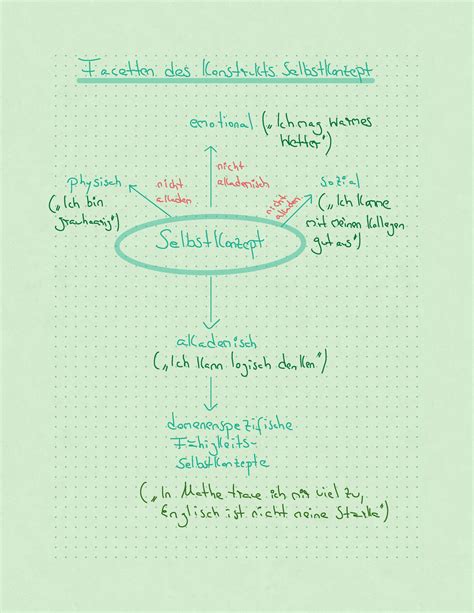 Facetten des Konstrukts Selbstkonzept
emotional („Ich mag warmes
Wetter")
nicht
akademisch
physisch
(„Ich bin
grauhaarig")
nicht
akadem
nicht
akadem
sozial
(„Ich komme
mit meinen Kollegen
gut aus")
Selbstkonzept
akademisch
(„Ich kann logisch denken")
domänenspezifische
Fähigkeits-
Selbstkonzepte
(„In Mathe traue ich mir viel zu,
Englisch ist nicht meine Stärke")